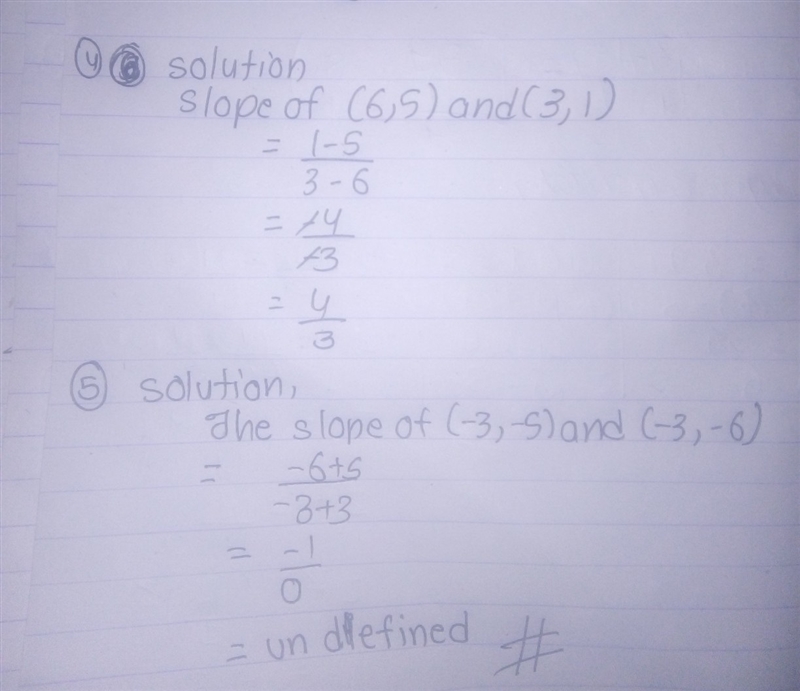 ④ solution
slope of (6,5) and (3,1)
= 1-5
3-6
= -4
-3
= 4
3
⑤ solution,
The slope of (-3,-5) and (-3,-6)
= -6+5
-3+3
= -1
0
= undefined #